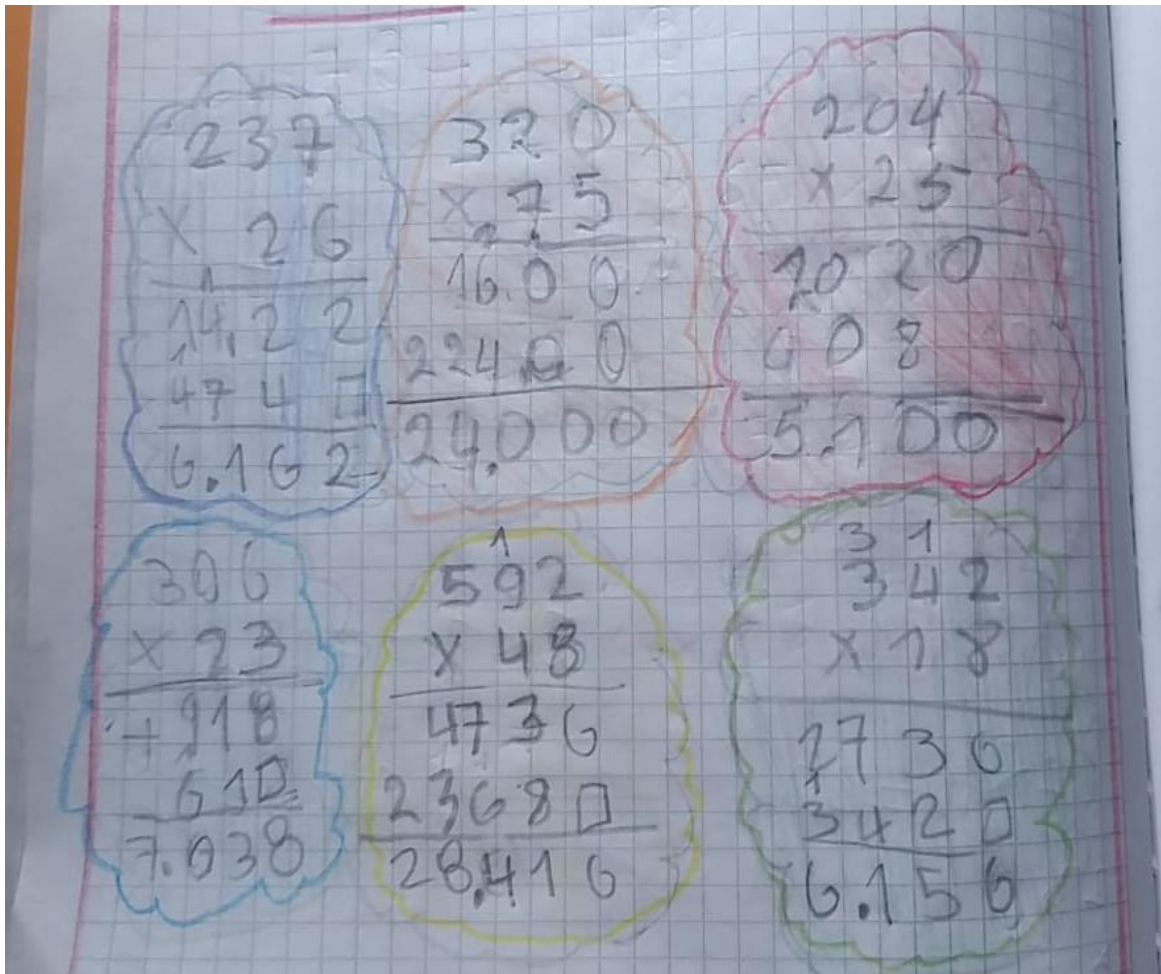 237
× 26
1
14.22
1
474□
6.162
320
×.75
2
16.00
22400
24.000
204
× 25
1020
408
5.100
306
× 23
+918
61□
7.038
1
592
× 48
4736
2368□
28.416
3 1
342
× 18
2736
1
342□
6.156